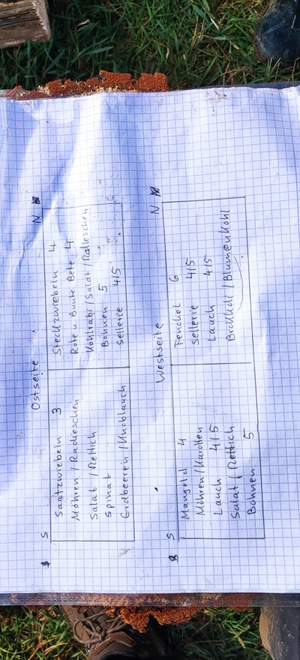 Ostseite
S N
Saatzwiebeln 3
Möhren / Radieschen
Salat / Rettich
Spinat
Erdbeeren / Knoblauch
Steckzwiebeln 4
Rote u. Bunte Bete 4
Kohlrabi / Salat / Radieschen
Bohnen 5
Sellerie 4/5
Westseite
S N
Mangold 4
Möhren / Karotten
Lauch 4/5
Salat / Rettich
Bohnen 5
Fenchel 6
Sellerie 4/5
Lauch 4/5
Brokkoli / Blumenkohl